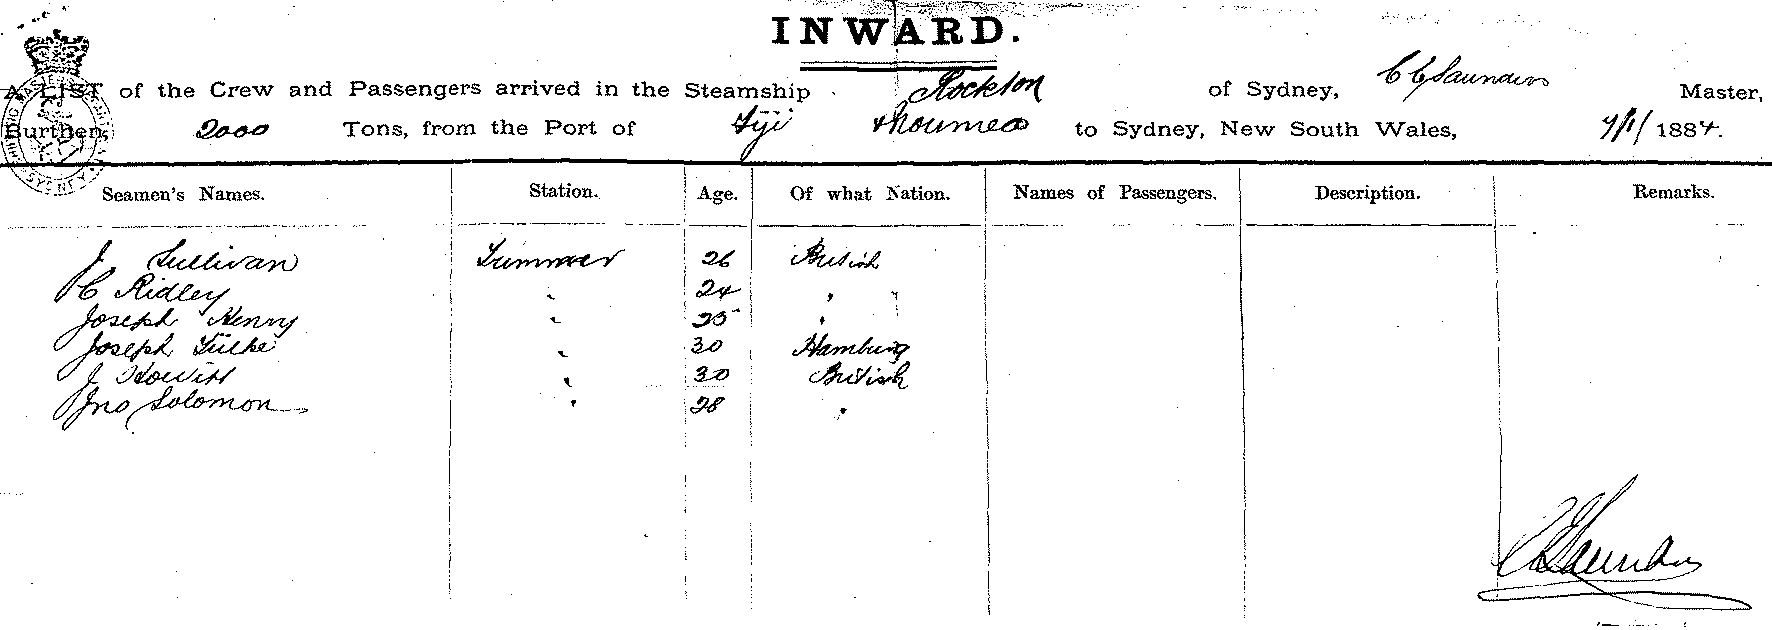 INWARD.
A LIST of the Crew and Passengers arrived in the Steamship Rockton of Sydney, C C Saunders Master,
Burthen, 2000 Tons, from the Port of Fiji & Noumea to Sydney, New South Wales, 7/1/ 1884.
Seamen's Names. Station. Age. Of what Nation. Names of Passengers. Description. Remarks.
J Sullivan Trimmer 26 British
C Ridley " 24 " "
Joseph Henry " 25 "
Joseph " 30 Hamburg
J Howitt " 30 British
Jno Solomon " 28 "
Saunders
SYDNEY